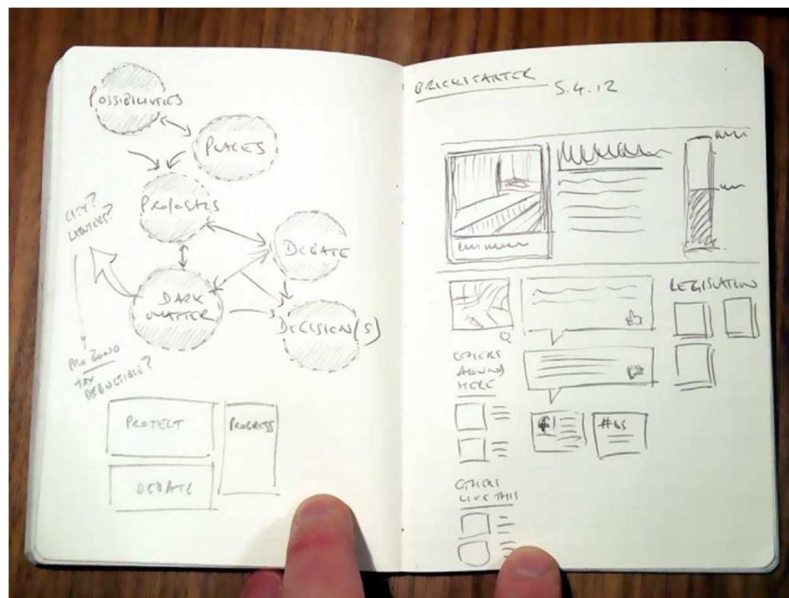 POSSIBILITIES
PLACES
PROPOSALS
CITY?
LAWYERS?
DEBATE
DARK
MATTER
DECISION(S)
PRO BONO
TAX
DEDUCTIBLE?
PROJECT
PROGRESS
DEBATE
BRICKSTARTER
5.4.12
LEGISLATION
OTHERS
AROUND
HERE
OTHERS
LIKE THIS